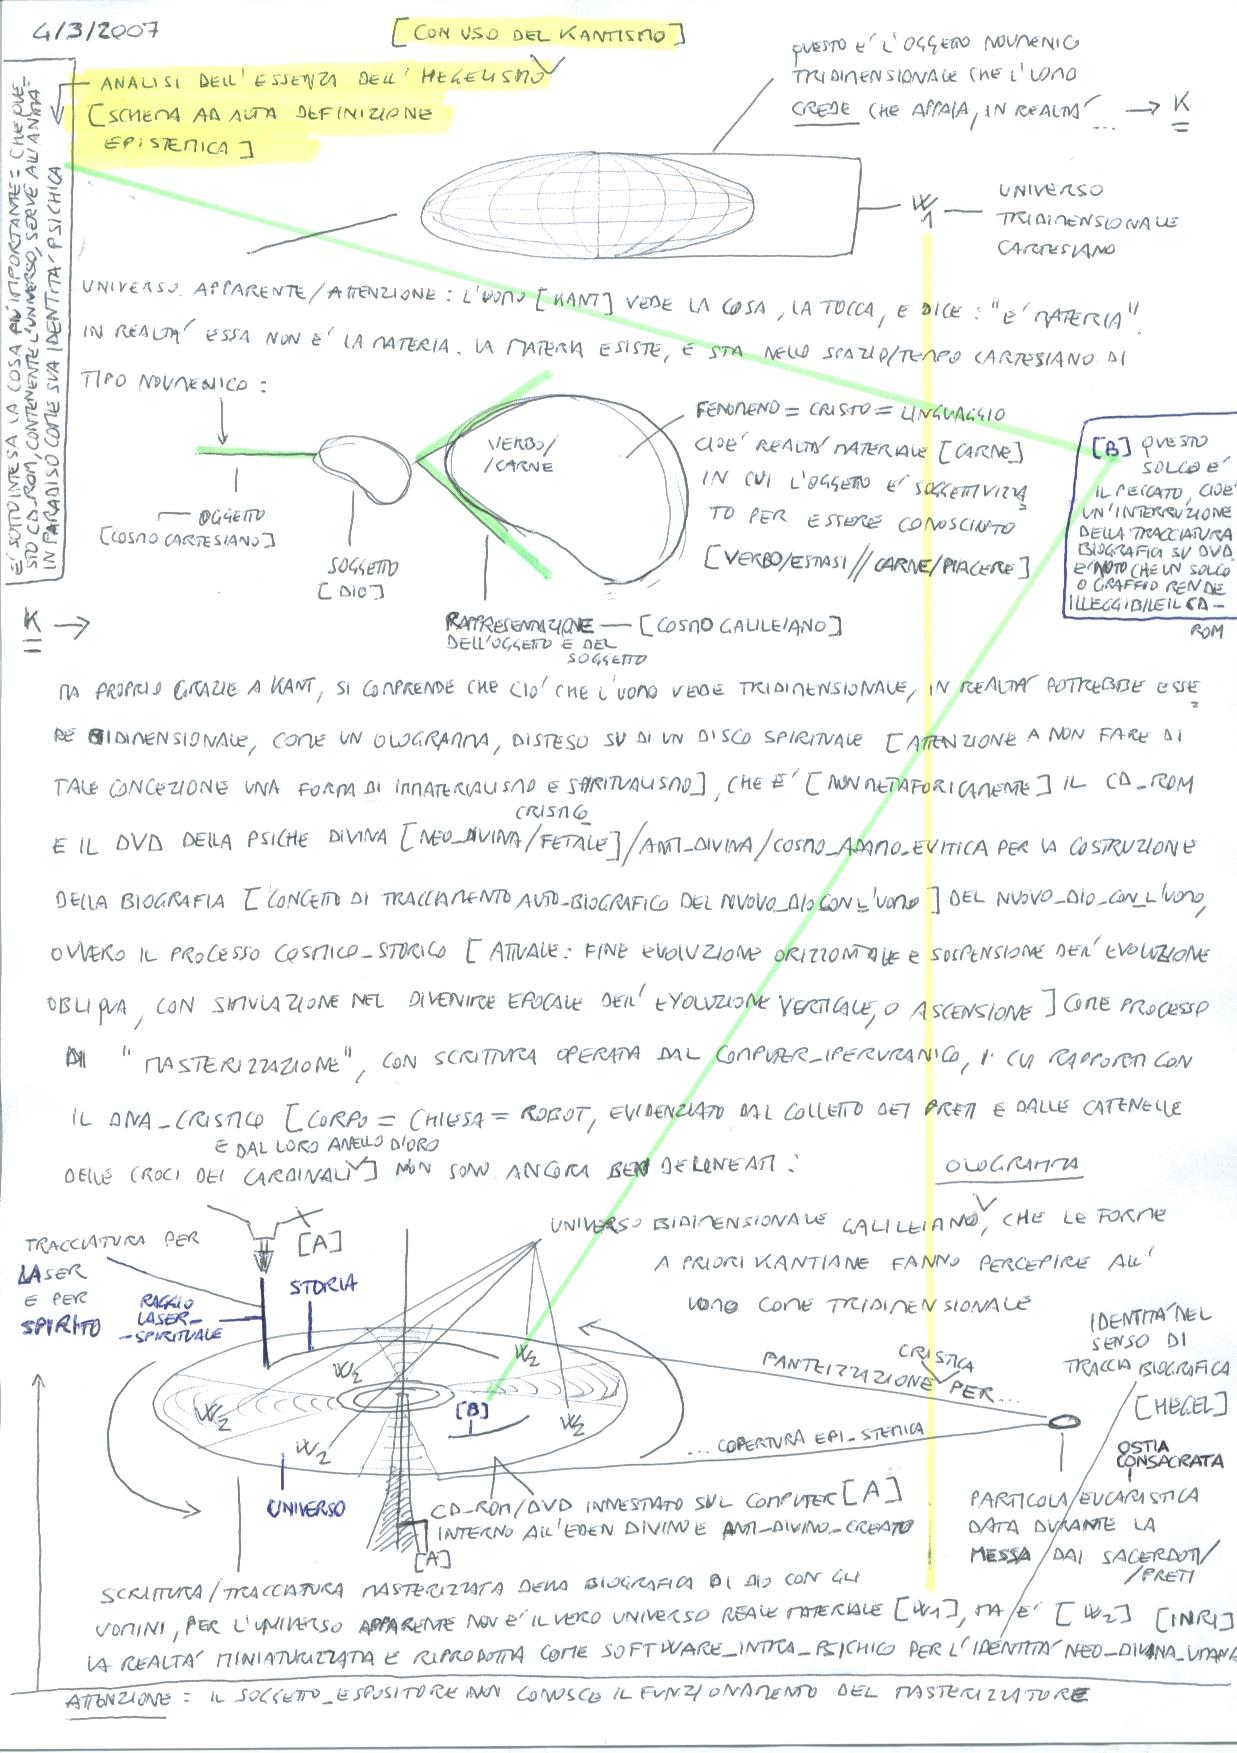 4/3/2007
[CON USO DEL KANTISMO]
ANALISI DELL'ESSENZA DELL'HEGELISMO
[SCHEMA AD ALTA DEFINIZIONE
EPISTEMICA]
E' SOTTINTESA LA COSA PIU' IMPORTANTE: CHE QUE-
STO CD_ROM, CONTENENTE L'UNIVERSO, SERVE ALL'ANIMA
IN PARADISO COME SUA IDENTITA' PSICHICA
QUESTO E' L'OGGETTO NOUMENICO
TRIDIMENSIONALE CHE L'UOMO
CREDE CHE APPAIA, IN REALTA' ... → K
W1
UNIVERSO
TRIDIMENSIONALE
CARTESIANO
UNIVERSO APPARENTE/ATTENZIONE: L'UOMO [KANT] VEDE LA COSA, LA TOCCA, E DICE: "E' MATERIA".
IN REALTA' ESSA NON E' LA MATERIA. LA MATERIA ESISTE, E STA NELLO SPAZIO/TEMPO CARTESIANO DI
TIPO NOUMENICO:
OGGETTO
[COSMO CARTESIANO]
SOGGETTO
[DIO]
VERBO/
/CARNE
FENOMENO = CRISTO = LINGUAGGIO
CIOE' REALTA' MATERIALE [CARNE]
IN CUI L'OGGETTO E' SOGGETTIVIZZA
TO PER ESSERE CONOSCIUTO
[VERBO/ESTASI//CARNE/PIACERE]
RAPPRESENTAZIONE — [COSMO GALILEIANO]
DELL'OGGETTO E DEL
SOGGETTO
[B] QUESTO
SOLCO E'
IL PECCATO, CIOE'
UN'INTERRUZIONE
DELLA TRACCIATURA
BIOGRAFICA SU DVD.
E' NOTO CHE UN SOLCO
O GRAFFIO RENDE
ILLEGGIBILE IL CD-
ROM
K →
MA PROPRIO GRAZIE A KANT, SI COMPRENDE CHE CIO' CHE L'UOMO VEDE TRIDIMENSIONALE, IN REALTA' POTREBBE ESSE
RE BIDIMENSIONALE, COME UN OLOGRAMMA, DISTESO SU DI UN DISCO SPIRITUALE [ATTENZIONE A NON FARE DI
TALE CONCEZIONE UNA FORMA DI IMMATERIALISMO E SPIRITUALISMO], CHE E' [NON METAFORICAMENTE] IL CD_ROM
CRISTICO
E IL DVD DELLA PSICHE DIVINA [NEO_DIVINA/FETALE]/ANTI_DIVINA/COSMO_ADAMO_EVITICA PER LA COSTRUZIONE
DELLA BIOGRAFIA [CONCETTO DI TRACCIAMENTO AUTO_BIOGRAFICO DEL NUOVO_DIO CON L'UOMO] DEL NUOVO_DIO_CON_L'UOMO,
OVVERO IL PROCESSO COSMICO_STORICO [ATTUALE: FINE EVOLUZIONE ORIZZONTALE E SOSPENSIONE DELL'EVOLUZIONE
OBLIQUA, CON SIMULAZIONE NEL DIVENIRE EPOCALE DELL'EVOLUZIONE VERTICALE, O ASCENSIONE] COME PROCESSO
DI "MASTERIZZAZIONE", CON SCRITTURA OPERATA DAL COMPUTER_IPERURANICO, I CUI RAPPORTI CON
IL DNA_CRISTICO [CORPO = CHIESA = ROBOT, EVIDENZIATO DAL COLLETTO DEI PRETI E DALLE CATENELLE
E DAL LORO ANELLO D'ORO
DELLE CROCI DEI CARDINALI] NON SONO ANCORA BEN DELINEATI:
OLOGRAMMA
UNIVERSO BIDIMENSIONALE GALILEIANO, CHE LE FORME
A PRIORI KANTIANE FANNO PERCEPIRE ALL'
UOMO COME TRIDIMENSIONALE
TRACCIATURA PER
LASER
E PER
SPIRITO
[A]
RAGGIO
LASER-
-SPIRITUALE
STORIA
W2
W2
W2
W2
W2
[B]
UNIVERSO
CRISTICA
PANTEIZZAZIONE PER...
... COPERTURA EPI_STEMICA
IDENTITA' NEL
SENSO DI
TRACCIA BIOGRAFICA
[HEGEL]
OSTIA
CONSACRATA
PARTICOLA EUCARISTICA
DATA DURANTE LA
MESSA DAI SACERDOTI/
/PRETI
CD_ROM/DVD INNESTATO SUL COMPUTER [A]
INTERNO ALL'EDEN DIVINO E ANTI_DIVINO_CREATO
[A]
SCRITTURA/TRACCIATURA MASTERIZZATA DELLA BIOGRAFICA DI DIO CON GLI
UOMINI, PER L'UNIVERSO APPARENTE NON E' IL VERO UNIVERSO REALE MATERIALE [W1], MA E' [W2] [INRI]
LA REALTA' MINIATURIZZATA E RIPRODOTTA COME SOFTWARE_INTRA_PSICHICO PER L'IDENTITA' NEO_DIVINA_UMANA
ATTENZIONE: IL SOGGETTO_ESPOSITORE NON CONOSCE IL FUNZIONAMENTO DEL MASTERIZZATORE